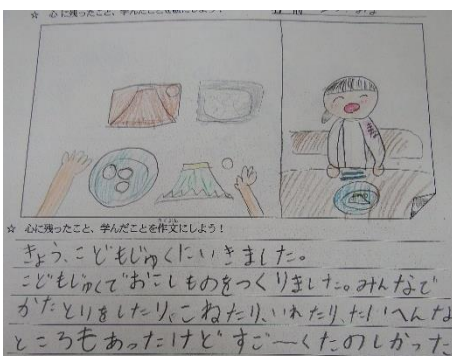 ☆ 心に残ったこと、学んだことを絵にしよう！
☆ 心に残ったこと、学んだことを作文にしよう！
きょう、こどもじゅくにいきました。
こどもじゅくでおこしものをつくりました。みんなで
かたとりをしたり、こねたり、いれたり、たいへんな
ところもあったけどすご〜くたのしかった